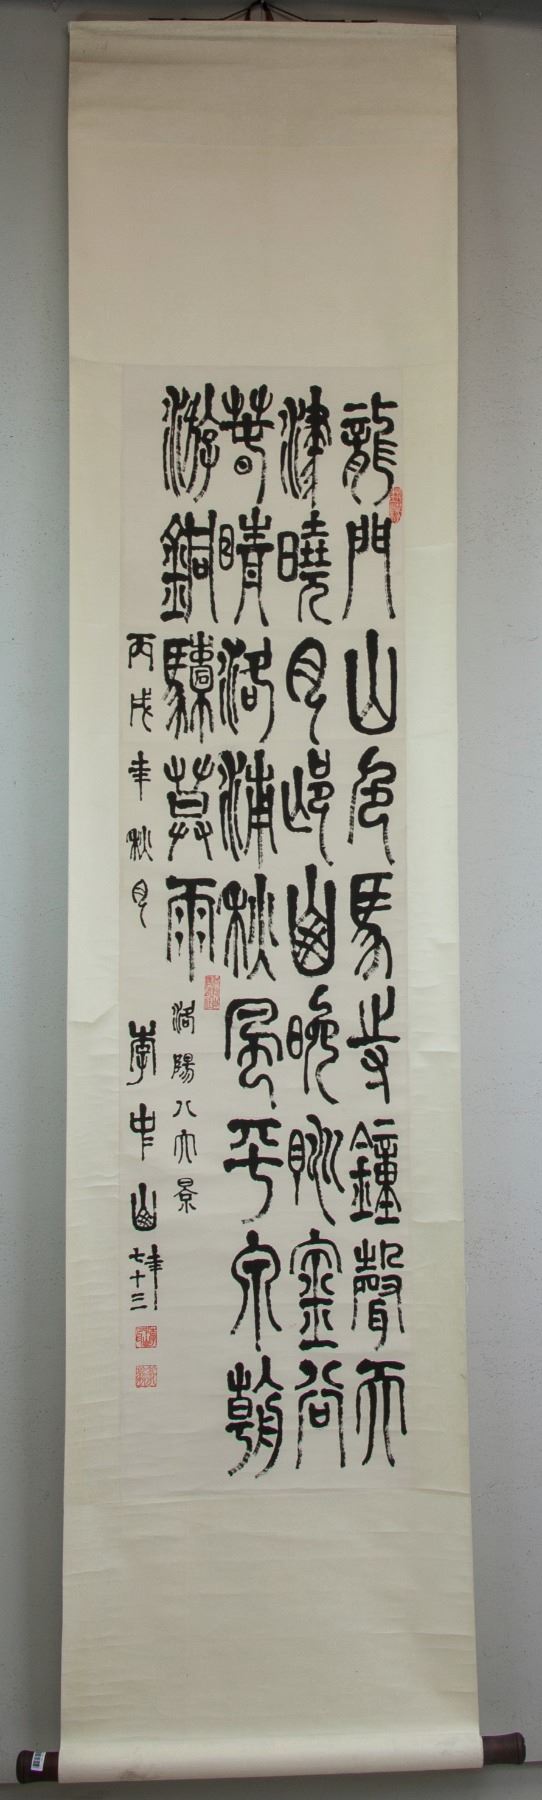 龍門山色馬寺鐘聲天
津曉月邙山晚眺金谷
春晴洛浦秋風平泉朝
游銅驝莫雨
洛陽八大景
丙戌年秋月
李中山年七十三